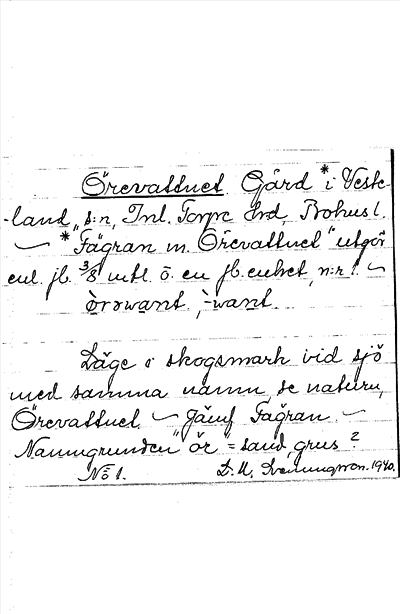 Örevattnet. Gård * i Veste-
-land, s:n, Inl. Torpe hrd, Bohusl.
— * "Fägran m. Örevattnet" utgör
enl. jb. 3/8 mtl ö. en jb.enhet, n:r 1. —
òrɘwant, -want.
Läge i skogsmark vid sjö
med samma namn, se naturn,
Örevattnet. — Jämf Fägran. —
Namngrunden "ör" = sand, grus?
No 1. D. U. Svenningsson. 1940.